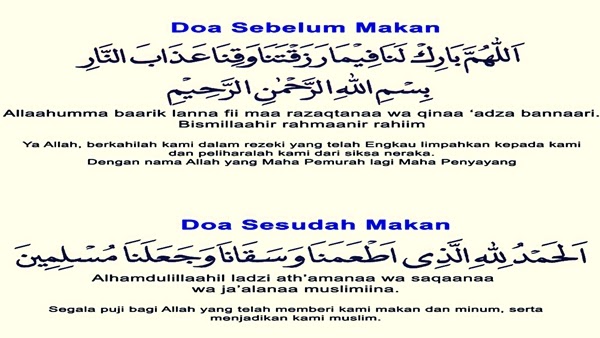 Doa Sebelum Makan
اَللّٰهُمَّ بَارِكْ لَنَا فِيْمَا رَزَقْتَنَا وَقِنَا عَذَابَ النَّارِ
بِسْمِ اللهِ الرَّحْمٰنِ الرَّحِيْمِ
Allaahumma baarik lanna fii maa razaqtanaa wa qinaa 'adza bannaari.
Bismillaahir rahmaanir rahiim
Ya Allah, berkahilah kami dalam rezeki yang telah Engkau limpahkan kepada kami
dan peliharalah kami dari siksa neraka.
Dengan nama Allah yang Maha Pemurah lagi Maha Penyayang
Doa Sesudah Makan
اَلْحَمْدُ لِلّٰهِ الَّذِى اَطْعَمَنَا وَسَقَانَا وَجَعَلَنَا مُسْلِمِيْنَ
Alhamdulillaahil ladzi ath'amanaa wa saqaanaa
wa ja'alanaa muslimiina.
Segala puji bagi Allah yang telah memberi kami makan dan minum, serta
menjadikan kami muslim.